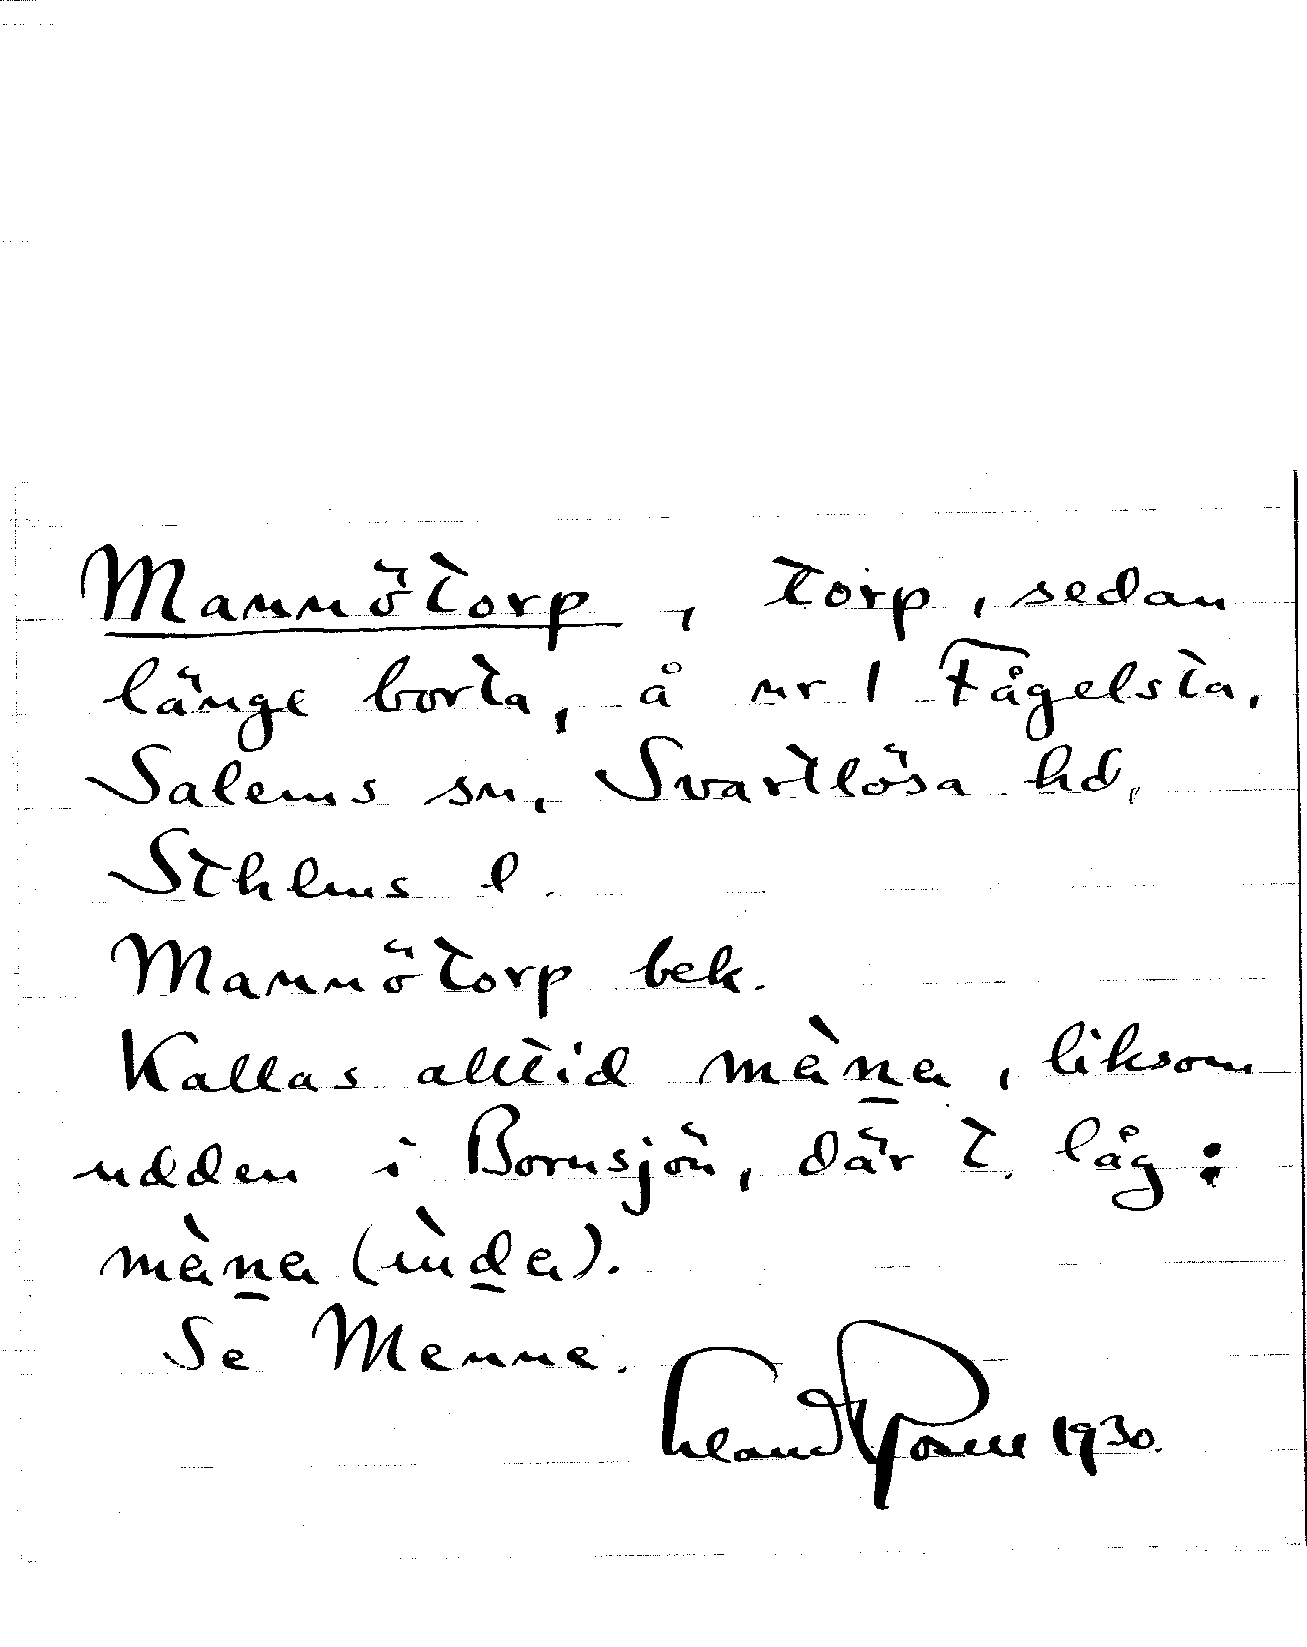 Mannötorp, torp, sedan
länge borta, å nr 1 Fågelsta,
Salems sn, Svartlösa hd,
Sthlms l.
Mannötorp bek.
Kallas alltid mὰn̲a, liksom
udden i Bornsjön, där t. låg:
mὰn̲a (ùd̲a).
Se Menne.
1930.